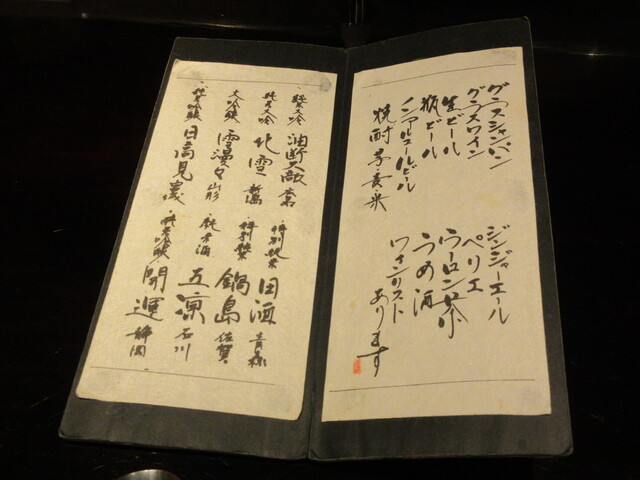 グラスシャンパン
グラスワイン
生ビール
瓶ビール
ノンアルコールビール
焼酎 芋 麦 米
ジンジャーエール
ペリエ
ウーロン茶
うめ酒
ワインリスト
あります
純米大吟 油断大敵
純米大吟 北雪 新潟
大吟醸 雪漫々 山形
純米吟醸 日高見
特別純米 田酒 青森
特別純米 鍋島 佐賀
純米酒 五凛 石川
純米吟醸 開運 静岡